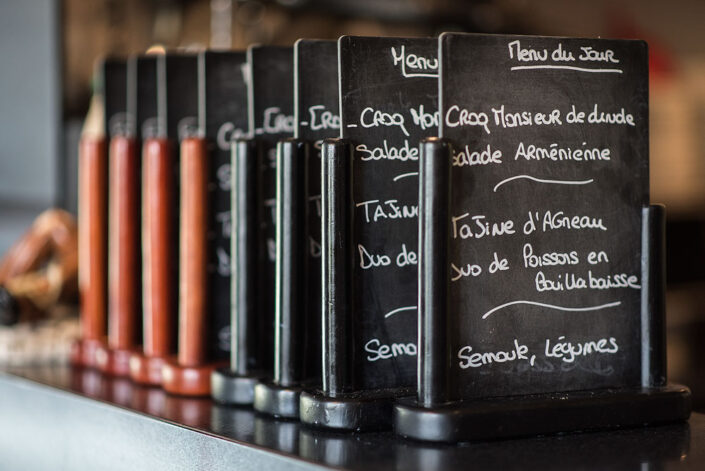 Menu du Jour
Croq Monsieur de dinde
Salade Arménienne
Tajine d'Agneau
Duo de Poissons en
Bouillabaisse
Semoule, Légumes
Menu
Croq Mon
Salade
Tajin
Duo de
Semou
Croq
Cro